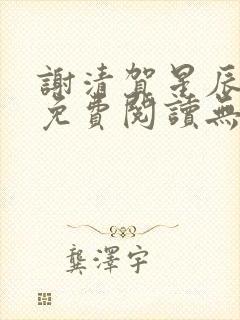 謝清賀星辰
免費閱讀無
龔澤宇